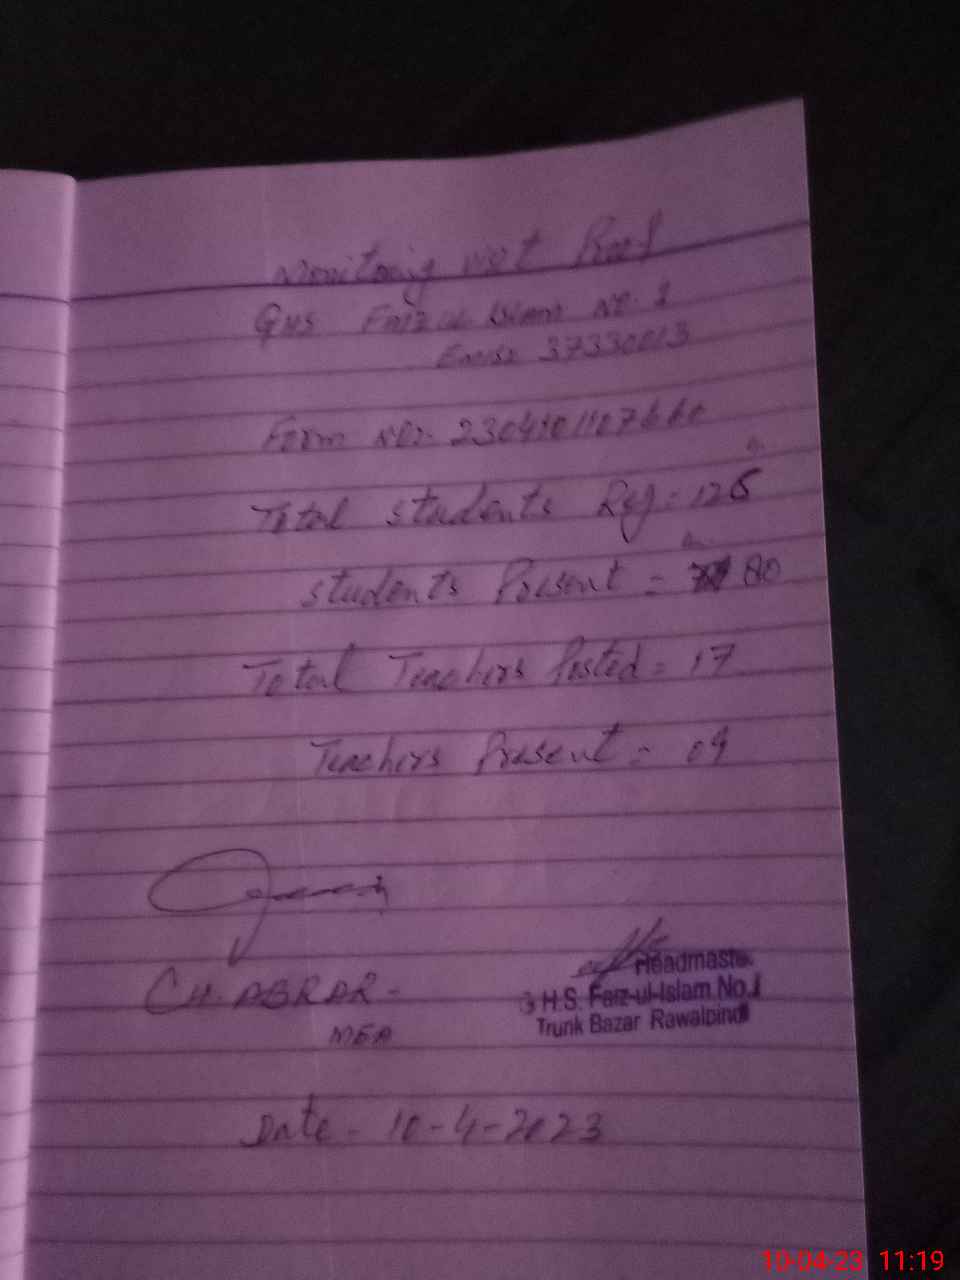 Monitoring visit Proof
GHS Faiz ul Islam No. 1
Emis: 37330013
Form No:
Total Students Reg = 126
Students Present = 80
Total Teachers Posted = 17
Teachers Present = 09
CH. ABRAR -
MEA
Headmaster
G H.S. Faiz-ul-Islam No.1
Trunk Bazar Rawalpindi
Date - 10-4-2023
10-04-23 11:19